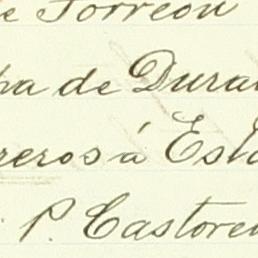 e Torreon
pa de Dura
reros á Esta
P. Castore